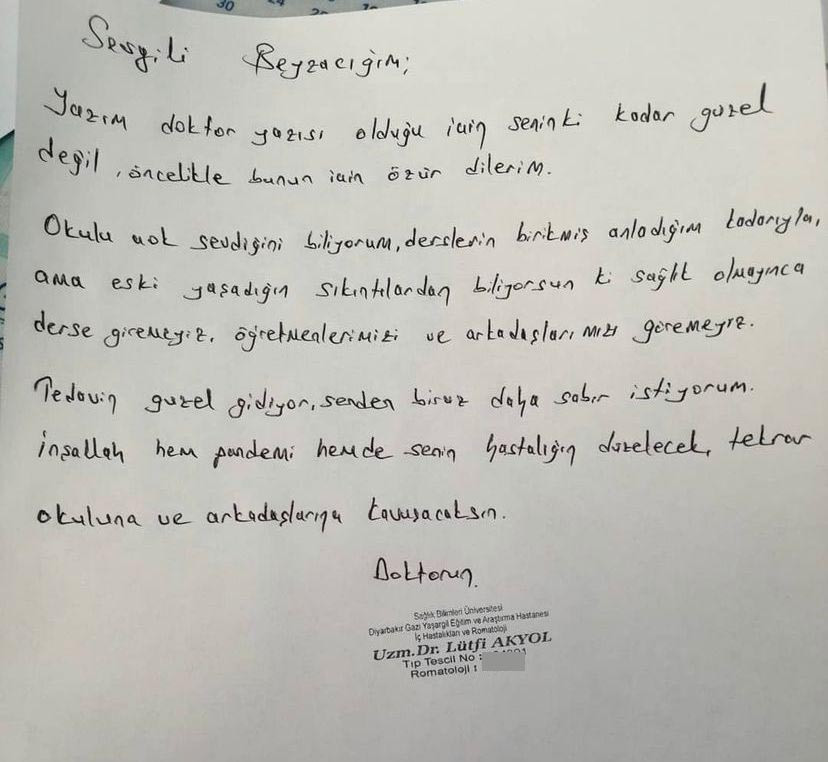 30
Sevgili Beyzacığım;
Yazım doktor yazısı olduğu için seninki kadar güzel
değil, öncelikle bunun için özür dilerim.
Okulu çok sevdiğini biliyorum, derslerin birikmiş anladığım kadarıyla,
ama eski yaşadığın sıkıntılardan biliyorsun ki sağlık olmayınca
derse giremeyiz, öğretmenlerimizi ve arkadaşlarımızı göremeyiz.
Tedavin güzel gidiyor, senden biraz daha sabır istiyorum.
inşallah hem pandemi hemde senin hastalığın düzelecek, tekrar
okuluna ve arkadaşlarına kavuşacaksın.
Doktorun.
Sağlık Bilimleri Üniversitesi
Diyarbakır Gazi Yaşargil Eğitim ve Araştırma Hastanesi
İç Hastalıkları ve Romatoloji
Uzm.Dr. Lütfi AKYOL
Tıp Tescil No :
Romatoloji :